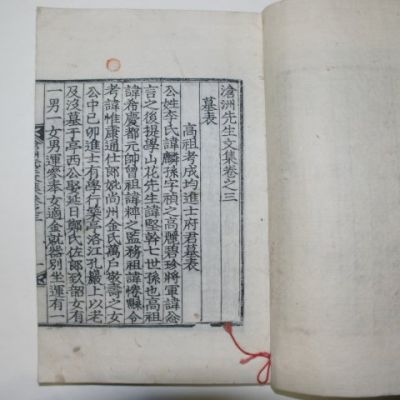 滄洲先生文集卷之三
墓表
高祖考成均進士府君墓表
公姓李氏諱麟孫字禎之高麗碧珍將軍諱忩
言之後提學山花先生諱堅幹七世孫也高祖
諱希慶都元帥曾祖諱粹之監務祖諱 縣令
考諱惟康通仕郎妣尚州金氏萬戶敬壽之女
公中己卯進士有學行築亭洛江孔巖上以老
及沒墓于亭西公娶延日鄭氏佐郎 韶女有
一男一女男運 參奉女適金就器別坐運有一